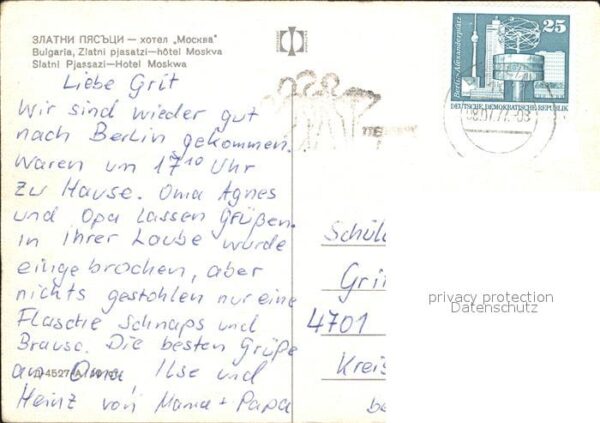 ЗЛАТНИ ПЯСЪЦИ — хотел „Москва"
Bulgaria, Zlatni pjasatzi—hôtel Moskva
Slatni Pjassazi—Hotel Moskwa
Liebe Grit
Wir sind wieder gut
nach Berlin gekommen.
Waren um 17¹⁰ Uhr
zu Hause. Oma Agnes
und Opa lassen grüßen.
in ihrer Laube wurde
eingebrochen, aber
nichts gestohlen nur eine
Flasche Schnaps und
Brause. Die besten Grüße
an Oma, Ilse und
Heinz von Mama + Papa
25
Berlin-Alexanderplatz
DEUTSCHE DEMOKRATISCHE REPUBLIK
08.07.77.-03
Schül
Gri
4701
Kreis
be
privacy protection
Datenschutz